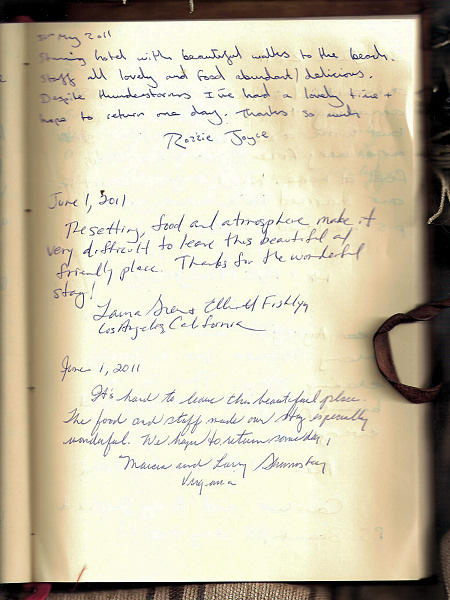 May 2011
Stunning hotel with beautiful walks to the beach.
Staff all lovely and food abundant/delicious.
Despite thunderstorms I've had a lovely time +
hope to return one day. Thanks so much
Rozzie Joyce
June 1, 2011
The setting, food and atmosphere make it
very difficult to leave this beautiful and
friendly place. Thanks for the wonderful
stay!
Laura
Los Angeles, California
June 1, 2011
It's hard to leave this beautiful place.
The food and staff made our stay especially
wonderful. We hope to return someday,
Marcia and Larry
Virginia